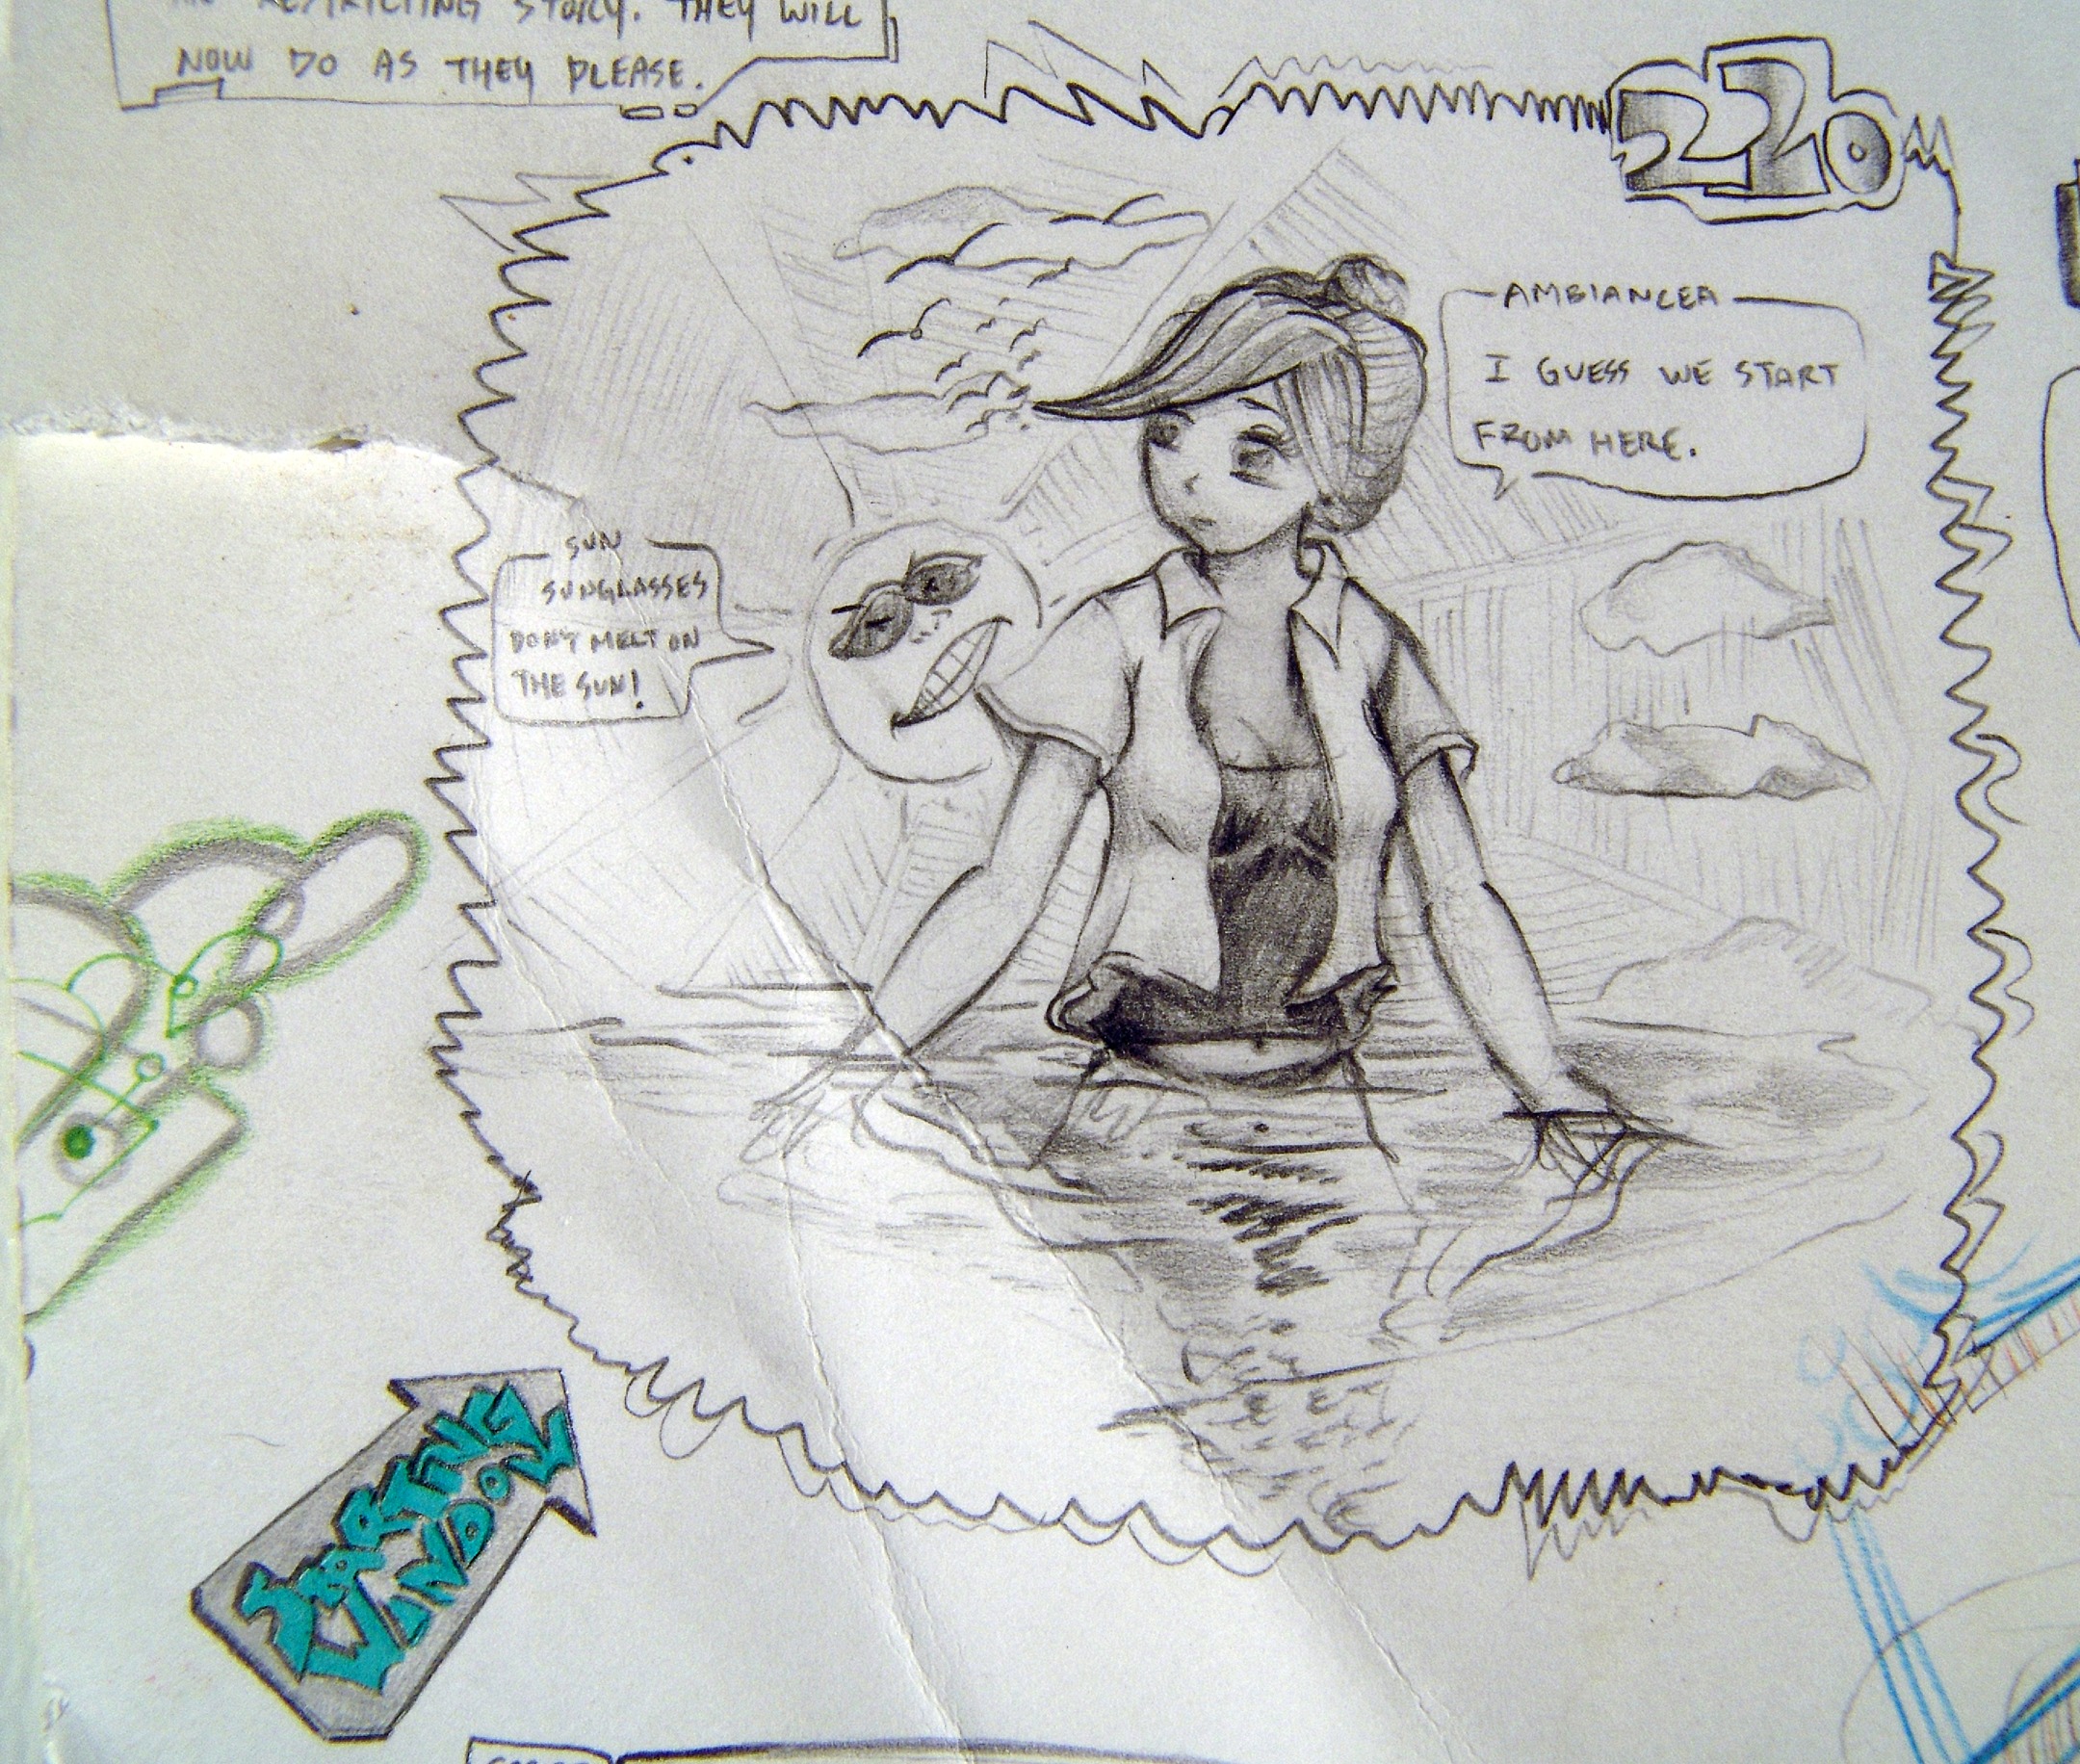 RESTRICTING STORY. THEY WILL
NOW DO AS THEY PLEASE.
220
AMBIANCEA
I GUESS WE START
FROM HERE.
SUN
SUNGLASSES
DON'T MELT ON
THE SUN!
STARTING
WINDOW